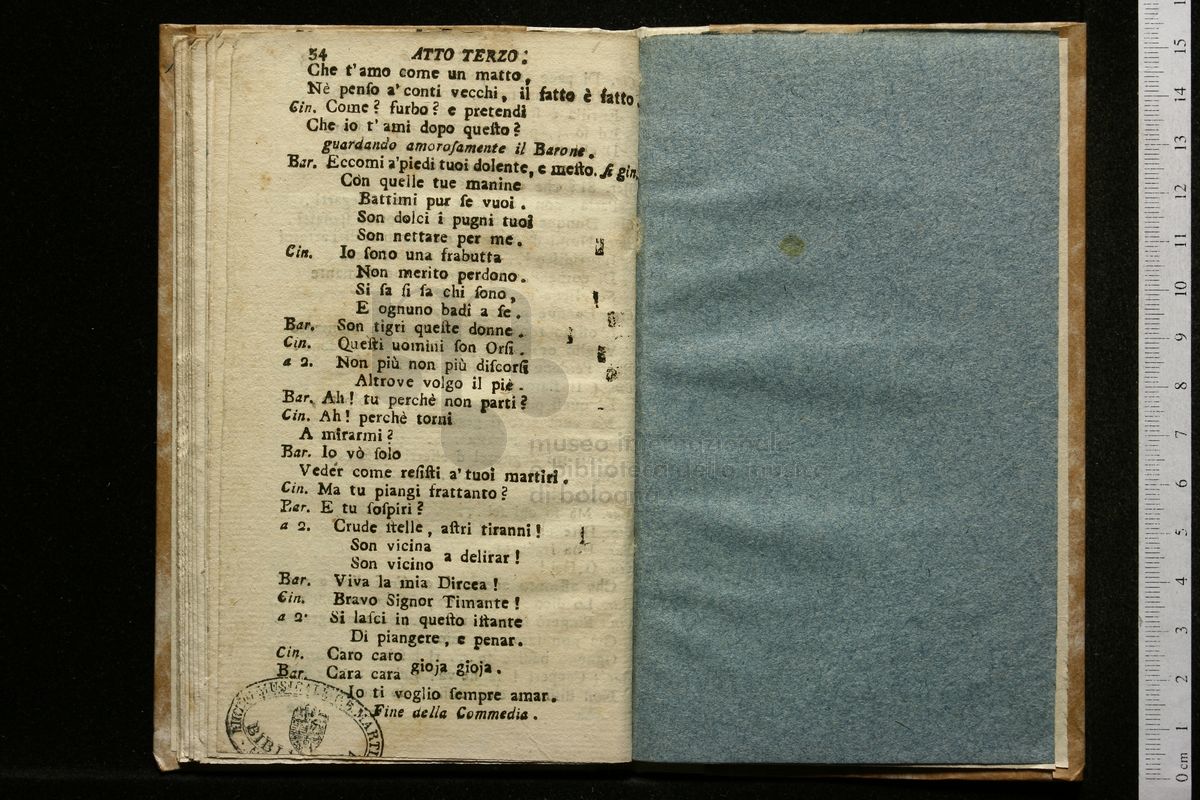 54 ATTO TERZO.
Che t'amo come un matto,
Nè penſo a' conti vecchi, il fatto è fatto.
Cin. Come? furbo? e pretendi
Che io t'ami dopo queſto?
guardando amoroſamente il Barone.
Bar. Eccomi a'piedi tuoi dolente, e meſto. ſi gin.
Con quelle tue manine
Battimi pur ſe vuoi.
Son dolci i pugni tuoi
Son nettare per me.
Cin. Io ſono una frabutta
Non merito perdono.
Si ſa ſi ſa chi ſono,
E ognuno badi a ſe.
Bar. Son tigri queſte donne.
Cin. Queſti uomini ſon Orſi.
a 2. Non più non più diſcorſi
Altrove volgo il piè.
Bar. Ah! tu perchè non parti?
Cin. Ah! perchè torni
A mirarmi?
Bar. Io vò ſolo
Veder come reſiſti a'tuoi martiri.
Cin. Ma tu piangi frattanto?
Bar. E tu ſoſpiri?
a 2. Crude ſtelle, aſtri tiranni!
Son vicina
Son vicino a delirar!
Bar. Viva la mia Dircea!
Cin. Bravo Signor Timante!
a 2. Si laſci in queſto iſtante
Di piangere, e penar.
Cin. Caro caro
Bar. Cara cara gioja gioja.
Io ti voglio ſempre amar.
Fine della Commedia.
museo internazionale
e biblioteca della musica
di bologna
MUSICALE G.B. MARTI
BIBL
0 cm 1 2 3 4 5 6 7 8 9 10 11 12 13 14 15